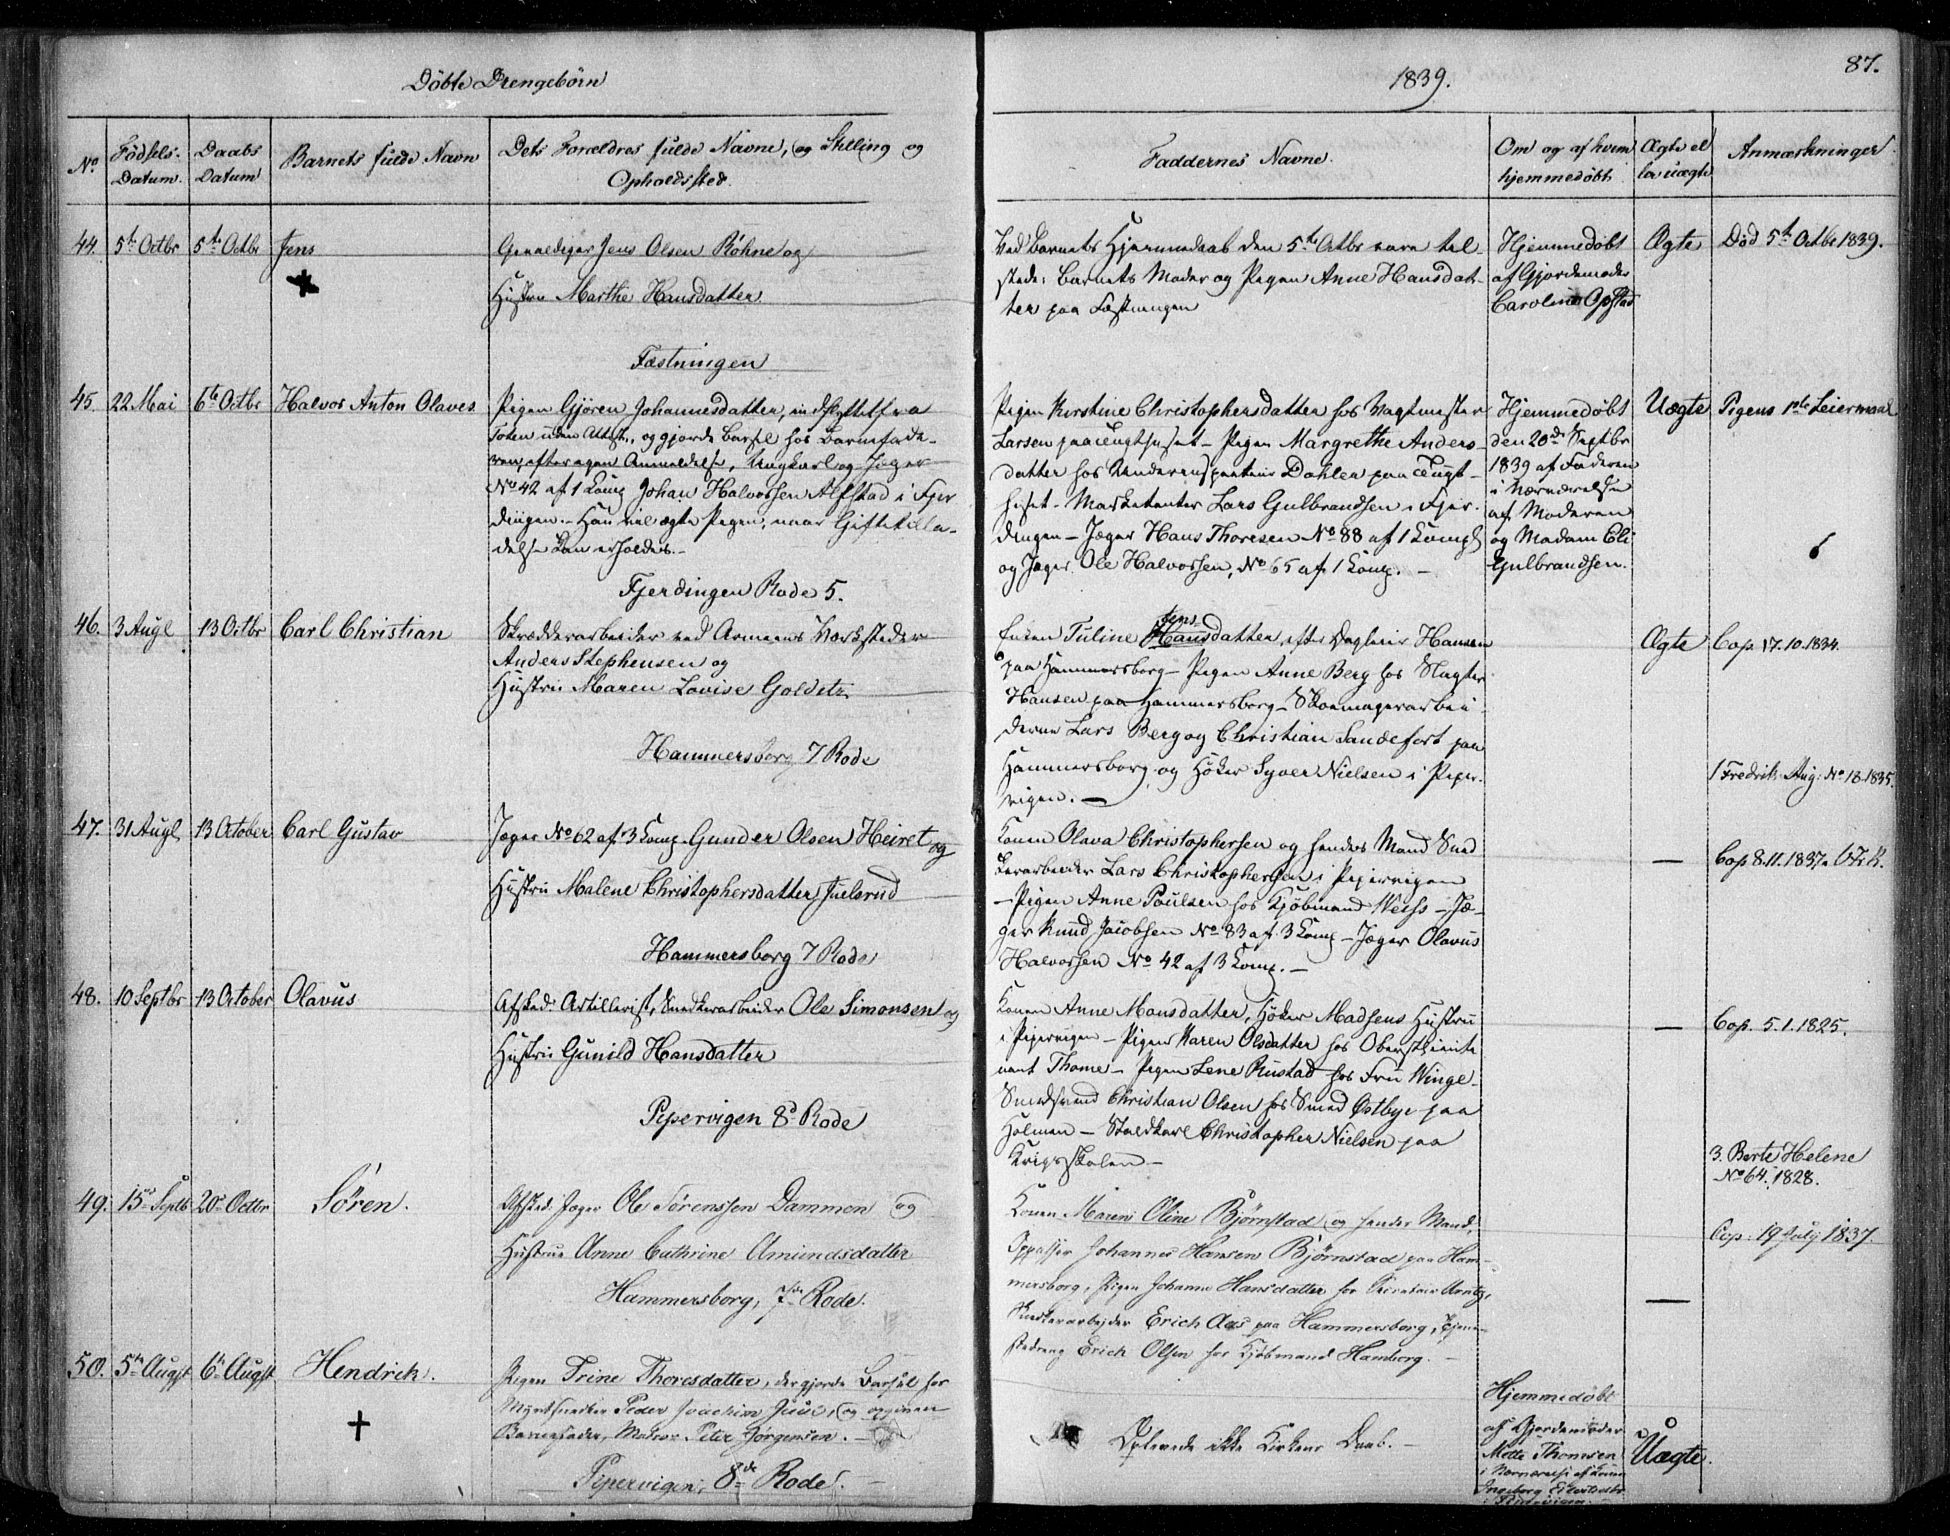 Döbte Drengebörn
1839.
87.
No
Födsels-Datum.
Daabs Datum
Barnets fulde Navn
Dets Forældres fulde Navne, og Stilling og
Opholdssted.
Faddernes Navne.
Om og af hvem
hjemmedøbt
Ægte el
ler uægte
Anmærkninger
44.
5te Octbr
5te Octbr
Jens
Jens Olsen Röhne og
Hustru Marthe Hansdatter
Fæstningen
Ved Barnets Hjemmedaab den 5te Octbr vare til
stede: Barnets Moder og Pigen Anne Hansdat-
ter paa Fæstningen
Hjemmedöbt
af Gjordemoder
Caroline Opstad
Ægte
Död 5te Octbr 1839.
45.
22 Mai
6te Octbr
Halvor Anton Olaves
Pigen Gjören Johannesdatter, indflyttet fra
Toten uden Attest, og gjorde Barsel hos Barnefade-
ren, efter egen Anmeldelse, Ungkarl og Jæger
No 42 af 1 Komp Johan Halvorsen Alfstad i Fjer
dingen. - Han vil ægte Pigen, naar Giftetilla-
delse kan erholdes. -
Fjerdingen Rode 5.
Pigen Kirstine Christophersdatter hos Vagtmester
Larsen paa Tugthuset - Pigen Margrethe Anders
datter hos Underinspecteur Dahlen paa Tugt-
huset - Marketenter Lars Gulbrandsen i Fjer-
dingen - Jæger Hans Thoresen No 88 af 1 Komp
og Jæger Ole Halvorsen, No 65 af 1 Komp. -
Hjemmedöbt
den 20de Septbr
1839 af Faderen
i Nærværelse
af Moderen
og Madam Eli
Gulbrandsen.
Uægte
Pigens 1ste Leiermaal
46.
3 Augt
13 Octbr
Carl Christian
Skrædderarbeider ved Armeens Værksteder
Anders Stephensen og
Hustru Maren Lovise Goldetz
Hammersborg 7 Rode
Jens
Enken Tuline Hansdatter, efter Dagleier Hansen
paa Hammersborg - Pigen Anne Berg hos Slagter
Hansen paa Hammersborg - Skoemagerarbei
derne Lars Berg og Christian Sandefort paa
Hammersborg og Höker Syver Nielsen i Piper-
vigen. -
Ægte
Cop. 17.10.1834.
1 Fredrik Aug: No 18.1835.
47.
31 Augt
13 October
Carl Gustav
Jæger No 62 af 3 Komp. Gunder Olsen Heiret og
Hustru Malene Christophersdatter Juelsrud
Hammersborg 7 Rode
Konen Olava Christophersen og hendes Mand Sned
kerarbeider Lars Christophersen i Pipervigen
- Pigen Anne Paulsen hos Kjöbmand Weiss - Jæ-
ger Knud Jacobsen No 83 af 3 Komp - Jæger Olavus
Halvorsen No 42 af 3 Komp. -
-
Cop 8.11.1837.
48.
10 Septbr
13 October
Olavus
Afsked: Artillerist, Snedkerarbeider Ole Simonsen og
Hustru Gunild Hansdatter
Pipervigen 8de Rode
Konen Anne Monsdatter, Höker Madsens Hustru
i Pipervigen - Pigen Karen Olsdatter hos Oberstlieute
nant Thome - Pigen Lene Rustad hos Fru Winge -
Smedsvend Christian Olsen hos Smed Østbye paa
Holmen - Staldkarl Christopher Nielsen paa
Krigsskolen -
-
Cop. 5.1.1825.
3. Berte Helene
No 64. 1828.
49.
15de Septb
20de Octbr
Sören.
Afsked: Jæger Ole Sörenssen Dammen og
Hustrue Anne Cathrine Amundsdatter
Hammersborg, 7de Rode.
Konen Maren Oline Björnstad og hendes Mand,
Oppasser Johannes Hansen Björnstad paa Ham-
mersborg, Pigen Johanne Hansdatter hos
Snedkerarbejder Erich Aas paa Hammersborg, Tjene-
stedreng Erich Olsen hos Kjöbmand Hamborg. -
-
Cop. 19 July 1837.
50.
5te Augst
6te Augst
Hendrik.
Pigen Trine Thoresdatter, der gjorde Barsel hos
Peder Joachim Juul, og opgiven
Barnefader, Matros Peter Jörgensen. -
Pipervigen, 8de Rode. -
Oplevede ikke Kirkens Daab. -
Hjemmedöbt
af Gjordemoder
Mette Thomsen
i Nærværelse af Konen
Uægte.